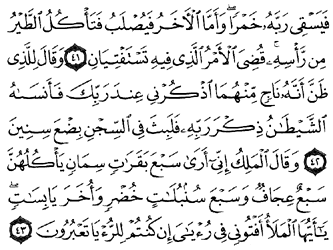 فَيَسْقِى رَبَّهُۥ خَمْرًا ۖ وَأَمَّا ٱلْأَخَرُ فَيُصْلَبُ فَتَأْكُلُ ٱلطَّيْرُ
مِن رَّأْسِهِۦ ۚ قُضِىَ ٱلْأَمْرُ ٱلَّذِى فِيهِ تَسْتَفْتِيَانِ ٤١ وَقَالَ لِلَّذِى
ظَنَّ أَنَّهُۥ نَاجٍ مِّنْهُمَا ٱذْكُرْنِى عِندَ رَبِّكَ فَأَنسَىٰهُ
ٱلشَّيْطَٰنُ ذِكْرَ رَبِّهِۦ فَلَبِثَ فِى ٱلسِّجْنِ بِضْعَ سِنِينَ
٤٢ وَقَالَ ٱلْمَلِكُ إِنِّىٓ أَرَىٰ سَبْعَ بَقَرَٰتٍ سِمَانٍ يَأْكُلُهُنَّ
سَبْعٌ عِجَافٌ وَسَبْعَ سُنۢبُلَٰتٍ خُضْرٍ وَأُخَرَ يَابِسَٰتٍ ۖ
يَٰٓأَيُّهَا ٱلْمَلَأُ أَفْتُونِى فِى رُءْيَٰىَ إِن كُنتُمْ لِلرُّءْيَا تَعْبُرُونَ ٤٣